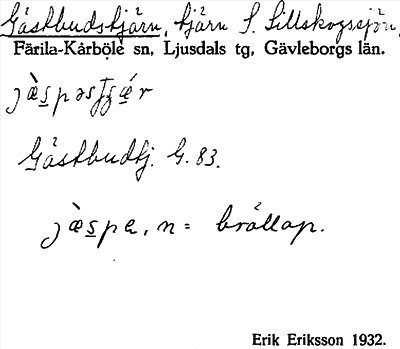 Gästbudstjärn, tjärn S. Lillskogssjön,
Färila-Kårböle sn, Ljusdals tg, Gävleborgs län.
Gästbudtj. G. 83.
n = bröllop.
Erik Eriksson 1932.